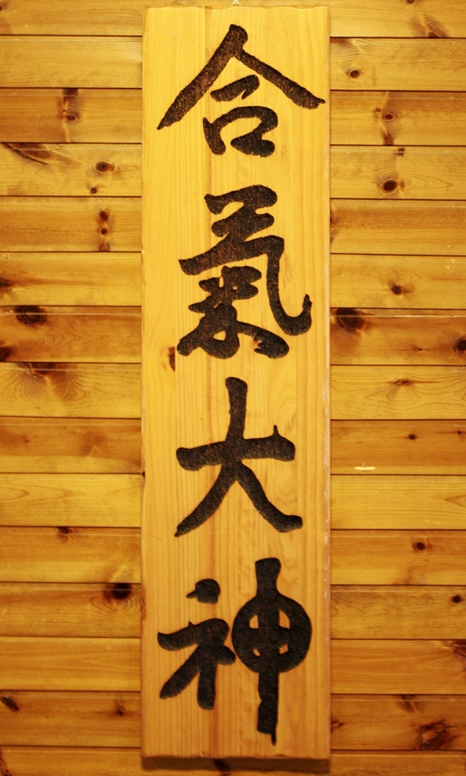 合氣大神